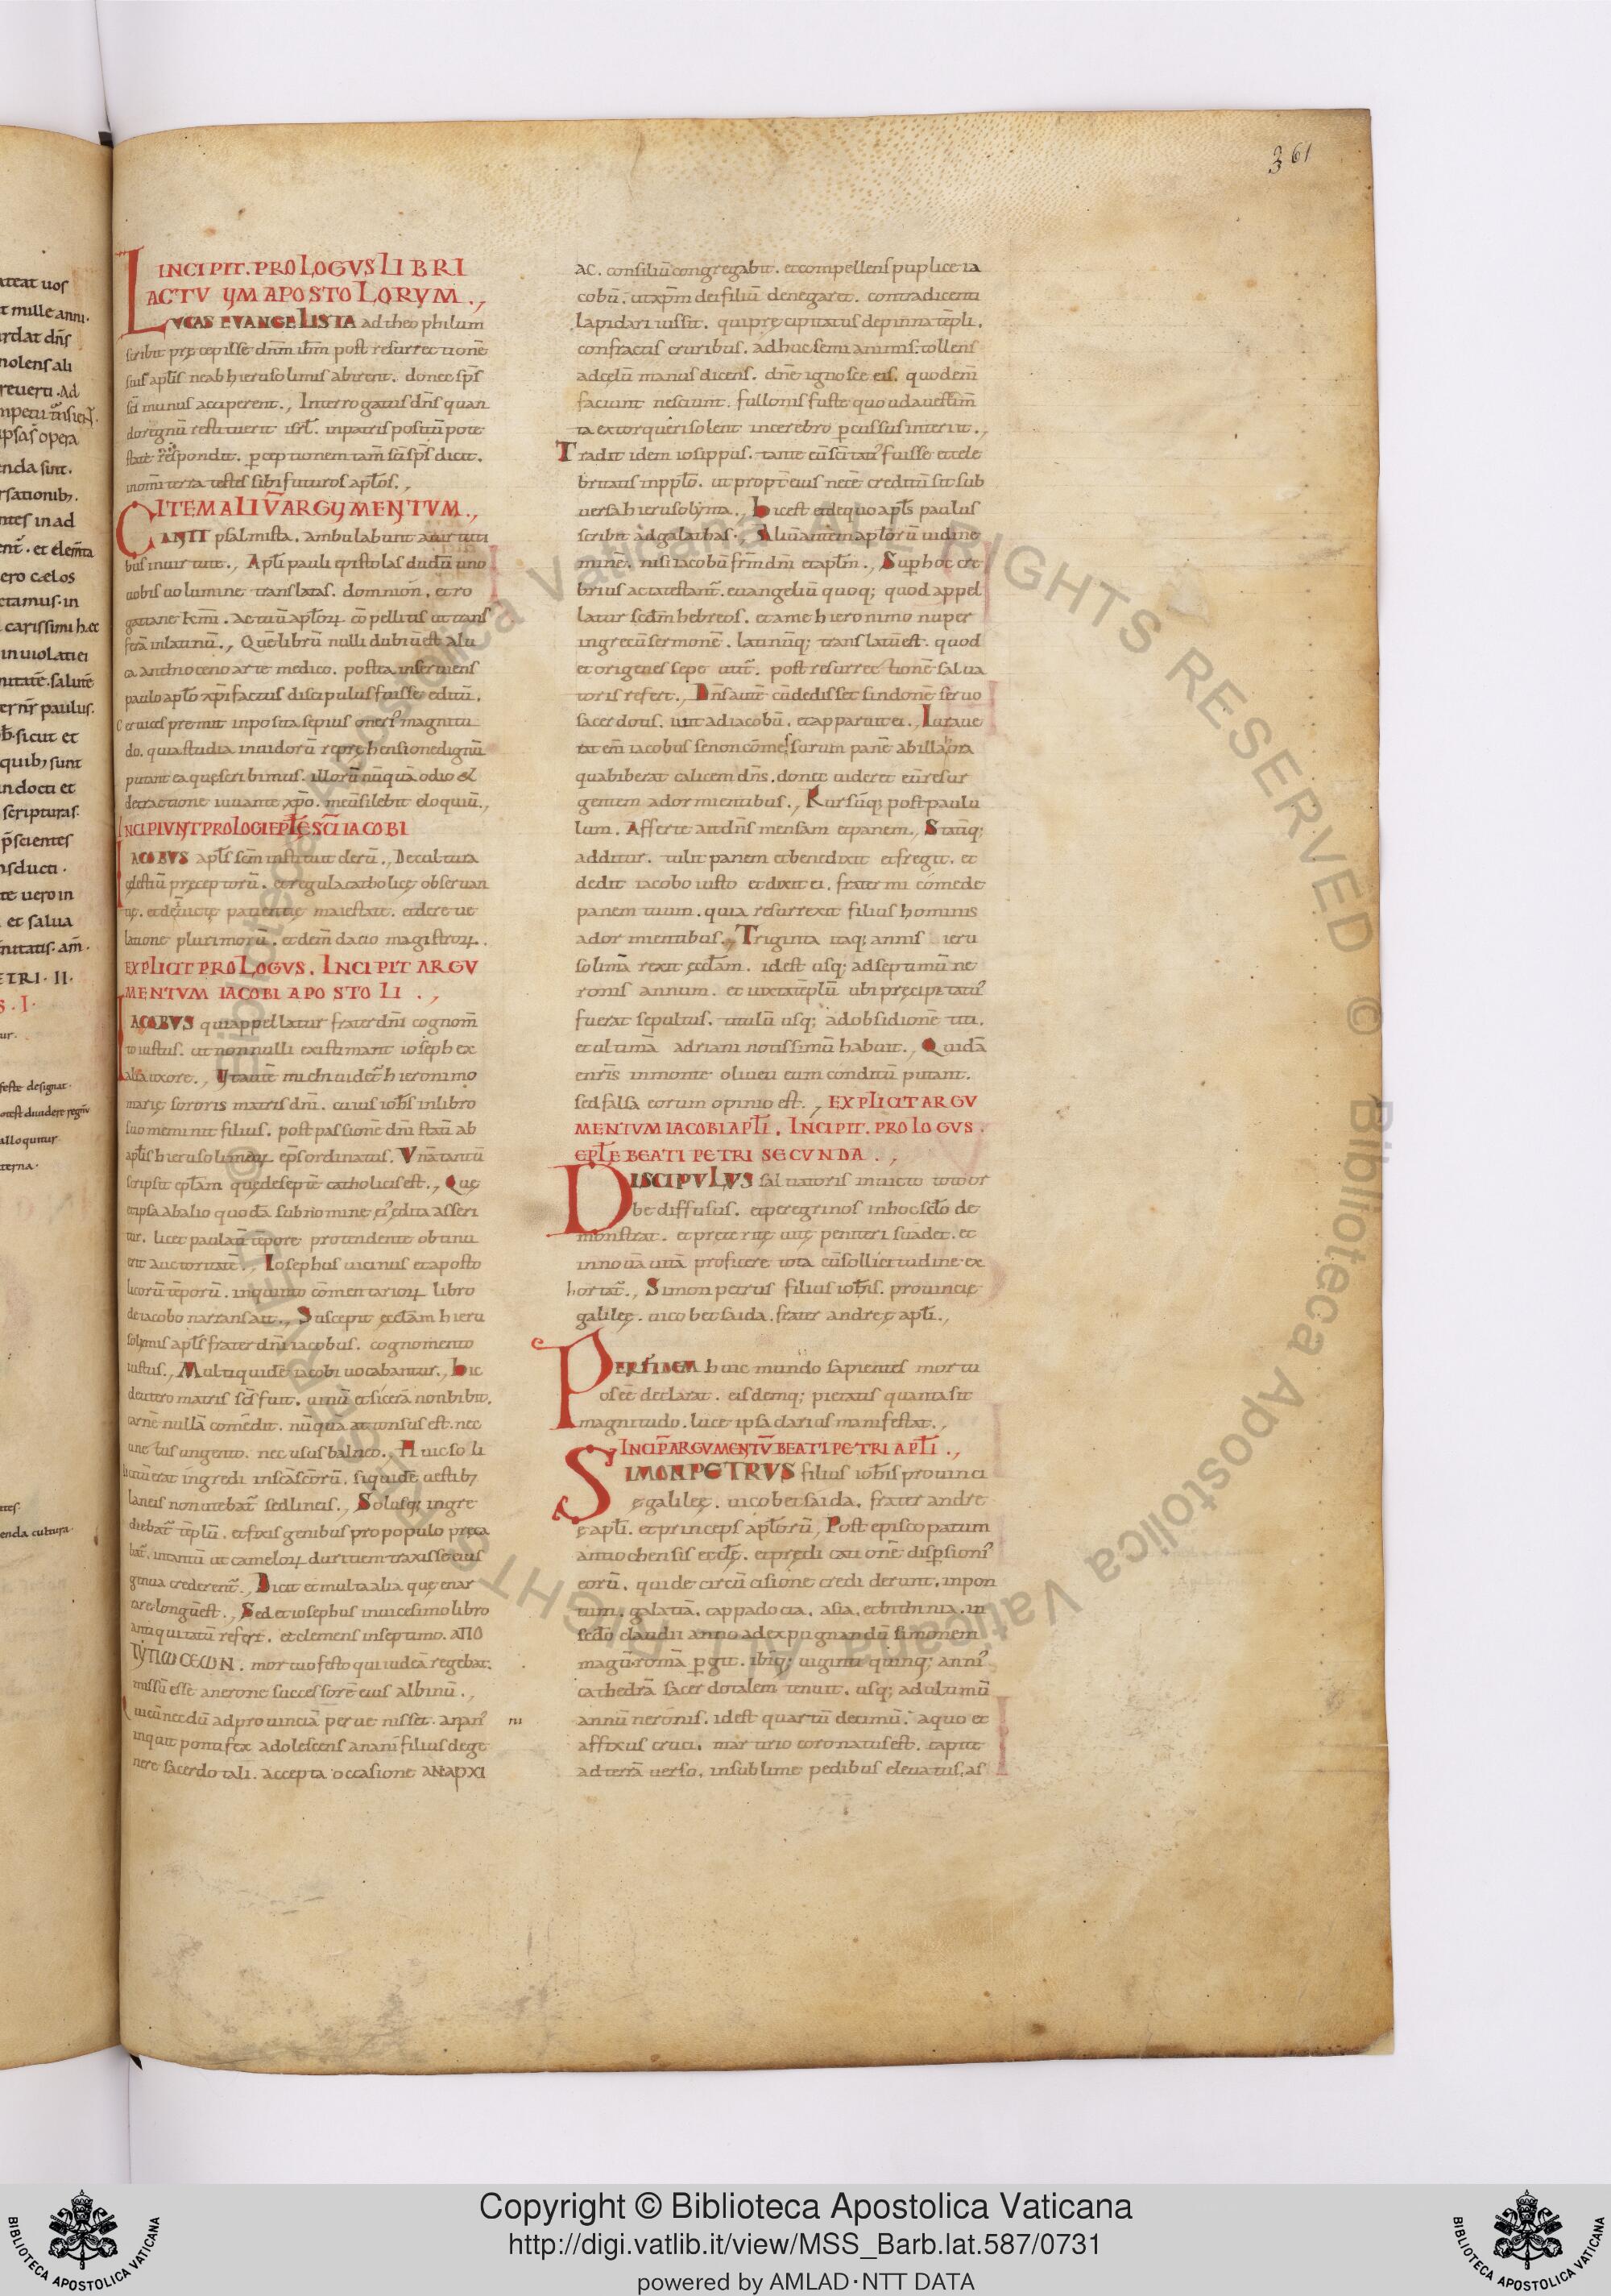 361
INCIPIT. PROLOGUS LIBRI
ACTUUM APOSTOLORUM.,
LUCAS EUANGELISTA ad theophilum
scribit pręcepisse dnm ihm post resurrectionē
suis apłis ne ab hierusolimis abirent. donec sps̄
sci munus acciperent., Interrogatus dns̄ quan
do regnū restituerit isrł. in patris positū pote
state respondit. perceptionem tam̄ sci sps̄ dicit.
in omī terra testes sibi futuros apłos.,
ITEM ALIŪ ARGUMENTUM.,
CANIT psalmista. ambulabunt a uirtuti
bus in uirtute., Apłi pauli epistolas dudū uno
uobis uolumine translatas. domnion. et ro
gatiane km̄i. actuū apłoꝝ cōpellitis ut trans
ferā in latinū., Quē librū nulli dubiū est a lu
ca antioceno arte medico. postea inseruiens
paulo apło xp̄i factus discipulus fuisse editū.
Ceruices premit inposita sepius oneris magnitu
do. quia studia inuidorū reprehensione dignū
putant ea quę scribimus. illorū nūquā odio et
detractione iuuante xpō. meū silebit eloquiū.,
INCIPIUNT PROLOGI EPŁE SCI IACOBI
IACOBUS apłs scm̄ instituit clerū., De cultura
celestiū pręceptorū. et regula catholicę obseruan
tię. et de inuictę patientię maiestate. et de reue
latione plurimorū. et dem datio magistroꝝ.
EXPLICIT PROLOGUS. INCIPIT ARGU
MENTUM IACOBI APOSTOLI.,
IACOBUS qui appellatur frater dn̄i cognom̄
to iustus. ut nonnulli existimant ioseph ex
alia uxore., Ut autē michi uidet̄ hieronimo
marię sororis matris dn̄i. cuius iohs̄ in libro
suo meminit filius. post passionē dn̄i statī ab
apłis hierusolimoꝝ eps̄ ordinatus. Unā tantū
scripsit epłam quę de septē catholicis est., Quę
et ipsa ab alio quodā sub nomine ei' edita asseri
tur. licet paulatī tēpore protendente obtinu
erit auctoritatē., Iosephus uicinus et aposto
licorū tēporū. in quinto cōmentarioꝝ libro
de iacobo narrans ait., Suscepit ęcctam hieru
solymis apłs frater dn̄i iacobus. cognomento
iustus., Multi quidē iacobi uocabantur., hic
de utero matris scs̄ fuit. uinū et sicerā non bibit.
carnē nullā comēdit. nūquā attonsus est. nec
unctus ungento. nec usus balneo., Huic soli
licitū erat ingredi in scā scōrū. siquidē uestibȝ
laneis non utebat̄ sed lineis., Solusq; ingre
diebat̄ tēplū. et fixis genibus pro populo pręca
bat̄. in tantū ut cameloꝝ duritiem traxisse eius
genua crederent̄., Dicit et multa alia quę enar
rare longū est., Sed et iosephus in uicesimo libro
antiquitatū refert. et clemens in septimo. ΑΠΟ
ΤΥΠΩCEΩN. mortuo festo qui iudeā regebat.
missū esse a nerone successorē eius albinū.,
Qui cū necdū ad prouinciā peruenisset. anan' ni
inquit pontifex adolescens anani filius de ge
nere sacerdotali. accepta occasione ΑΝΑΡΧΙ
ac. consiliū congregabit. et compellens puplice ia
cobū. ut xpm̄ dei filiū denegaret. contradicenti
lapidari iussit. qui pręcipitatus de pinna tēpli.
confractis cruribus. adhuc semianimis. tollens
ad celū manus dicens. dnē ignosce eis. quod eni
faciunt nesciunt. fullonis fuste quo uda uestim̄
ta extorqueri solent in cerebro percussus interiit.,
Tradit idem iosippus. tante eū scitati' fuisse et cele
britatis in pplo. ut propt̄ eius necē creditū sit sub
uersa hierusolyma., hic est et de quo apłs paulus
scribit ad galathas., Aliū autem aplorū uidi ne
minē. nisi iacobū fr̄m dn̄i et apłm., Sup hoc cre
brius acta testant̄. euangeliū quoq; quod appel
latur scdm̄ hebreos. et a me hieronimo nuper
in grecū sermonē. latinūq; translatū est. quod
et origenes sepe utit̄. post resurrectionē salua
toris refert., Dns̄ autē cū dedisset sindonē seruo
sacerdotis. iuit ad iacobū. et apparuit ei., Iuraue
rat em̄ iacobus se non comēsurum panē ab illa ora
qua biberat calicem dns̄. donec uideret eū resur
gentem a dormientibus., Rursūq; post paulu
lum. Afferte ait dns̄ mensam et panem., Statīq;
additur. tulit panem et benedixit et fregit. et
dedit iacobo iusto et dixit ei. frater mi comede
panem tuum. quia resurrexit filius hominis
a dormientibus., Triginta itaq; annis ieru
solimā rexit ęcclam. id est usq; ad septimū ne
ronis annum. et iuxta tēplū ubi pręcipitatu'
fuerat sepultus. titulū usq; ad obsidionē titi.
et ultimā adriani notissimū habuit., Quidā
enris in monte oliueti eum conditū putant.
sed falsa eorum opinio est., EXPLICIT ARGU
MENTUM IACOBI APŁI. INCIPIT. PROLOGUS.
EPŁE BEATI PETRI SECUNDA.,
DISCIPULUS saluatoris inuicti toto or
be diffusus. et peregrinos in hoc scło de
monstrat. et preteritę uitę peniteri suadet. et
in nouā uitā proficere tota cū sollicitudine ex
hortat̄., Simon petrus filius iohs̄. prouincię
galileę. uico betsaida. frater andreę apłi.,
PER FIDEM huic mundo sapientes mortu
os eē declarat. eisdemq; pietatis quanta sit
magnitudo. luce ipsa clarius manifestat.,
INCIP̄ ARGUMENTŪ BEATI PETRI APŁI.,
SIMON PETRUS filius iohis prouinci
ę galileę. uico betsaida. frater andre
ę apłi. et princeps apłorū, Post episcopatum
antiochensis eccłę. et prędicationē dispersioni'
eorū. qui de circūcisione crediderunt. in pon
tum. galatiā. cappadocia. asia. et bithinia. in
scdo claudii anno ad expugnandū simonem
magū. romā pergit. ibiq; uiginti quinq; anni'
cathedrā sacerdotalem tenuit. usq; ad ultimū
annū neronis. id est quartū decimū. a quo et
affixus cruci. martirio coronatus est. capite
ad terrā uerso. in sublime pedibus eleuatis. as
Copyright © Biblioteca Apostolica Vaticana
http://digi.vatlib.it/view/MSS_Barb.lat.587/0731
powered by AMLAD·NTT DATA